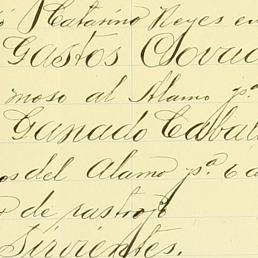 Catarino Reyes en
Gastos Clovad
moso al Alamo pª
Ganado Caball
os del Alamo pª 6 a
de rastrojo
Sirvientes.